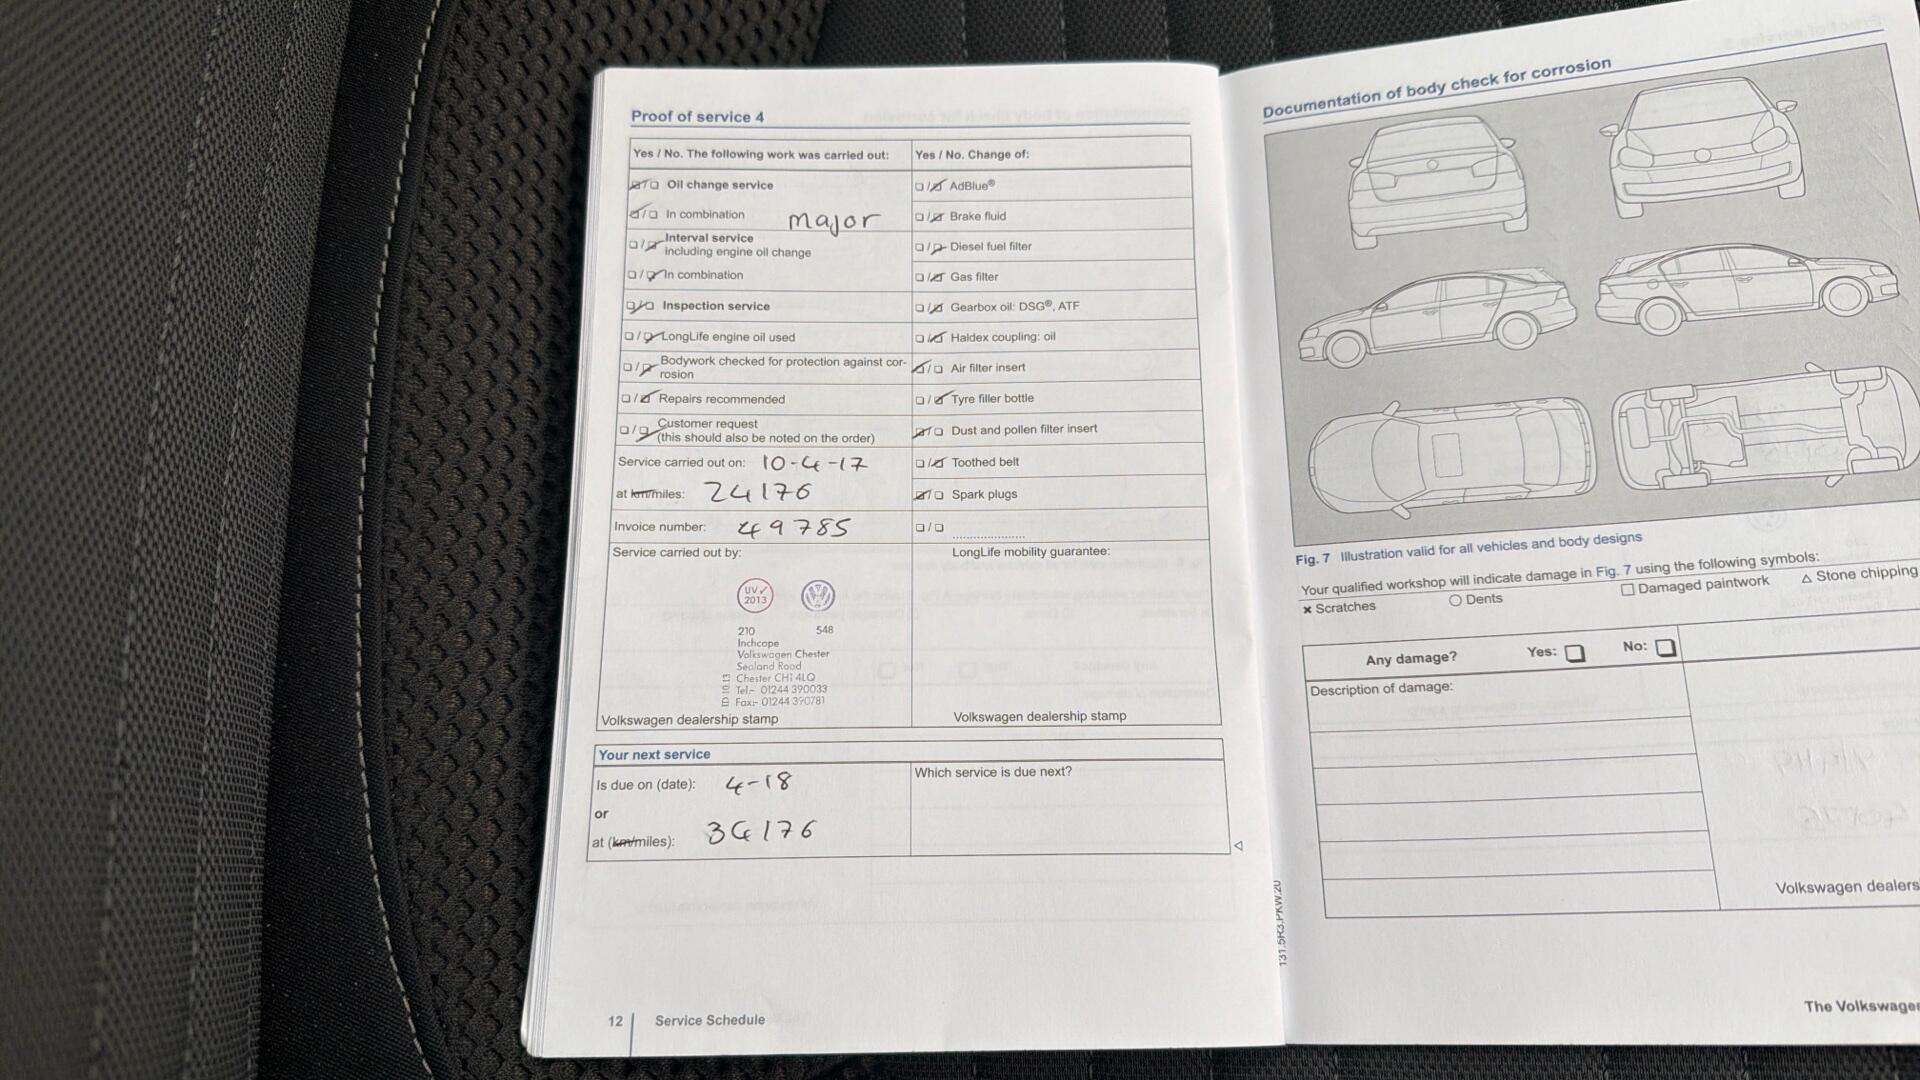 Proof of service 4
Yes / No. The following work was carried out:
Oil change service
In combination
major
Interval service
including engine oil change
In combination
Inspection service
LongLife engine oil used
Bodywork checked for protection against cor-
rosion
Repairs recommended
Customer request
(this should also be noted on the order)
Service carried out on: 10-4-17
at km/miles: 24176
Invoice number: 49785
Service carried out by:
UV
2013
210 548
Inchcape
Volkswagen Chester
Sealand Road
Chester CH1 4LQ
Tel:- 01244 390033
Fax:- 01244 390781
Volkswagen dealership stamp
Yes / No. Change of:
AdBlue®
Brake fluid
Diesel fuel filter
Gas filter
Gearbox oil: DSG®, ATF
Haldex coupling: oil
Air filter insert
Tyre filler bottle
Dust and pollen filter insert
Toothed belt
Spark plugs
LongLife mobility guarantee:
Volkswagen dealership stamp
Your next service
Is due on (date): 4-18
or
at (km/miles): 34176
Which service is due next?
12 Service Schedule
131.5R3.PKW.20
Documentation of body check for corrosion
Fig. 7 Illustration valid for all vehicles and body designs
Your qualified workshop will indicate damage in Fig. 7 using the following symbols:
× Scratches ○ Dents □ Damaged paintwork △ Stone chipping
Any damage? Yes: No:
Description of damage:
Volkswagen dealers
The Volkswagen